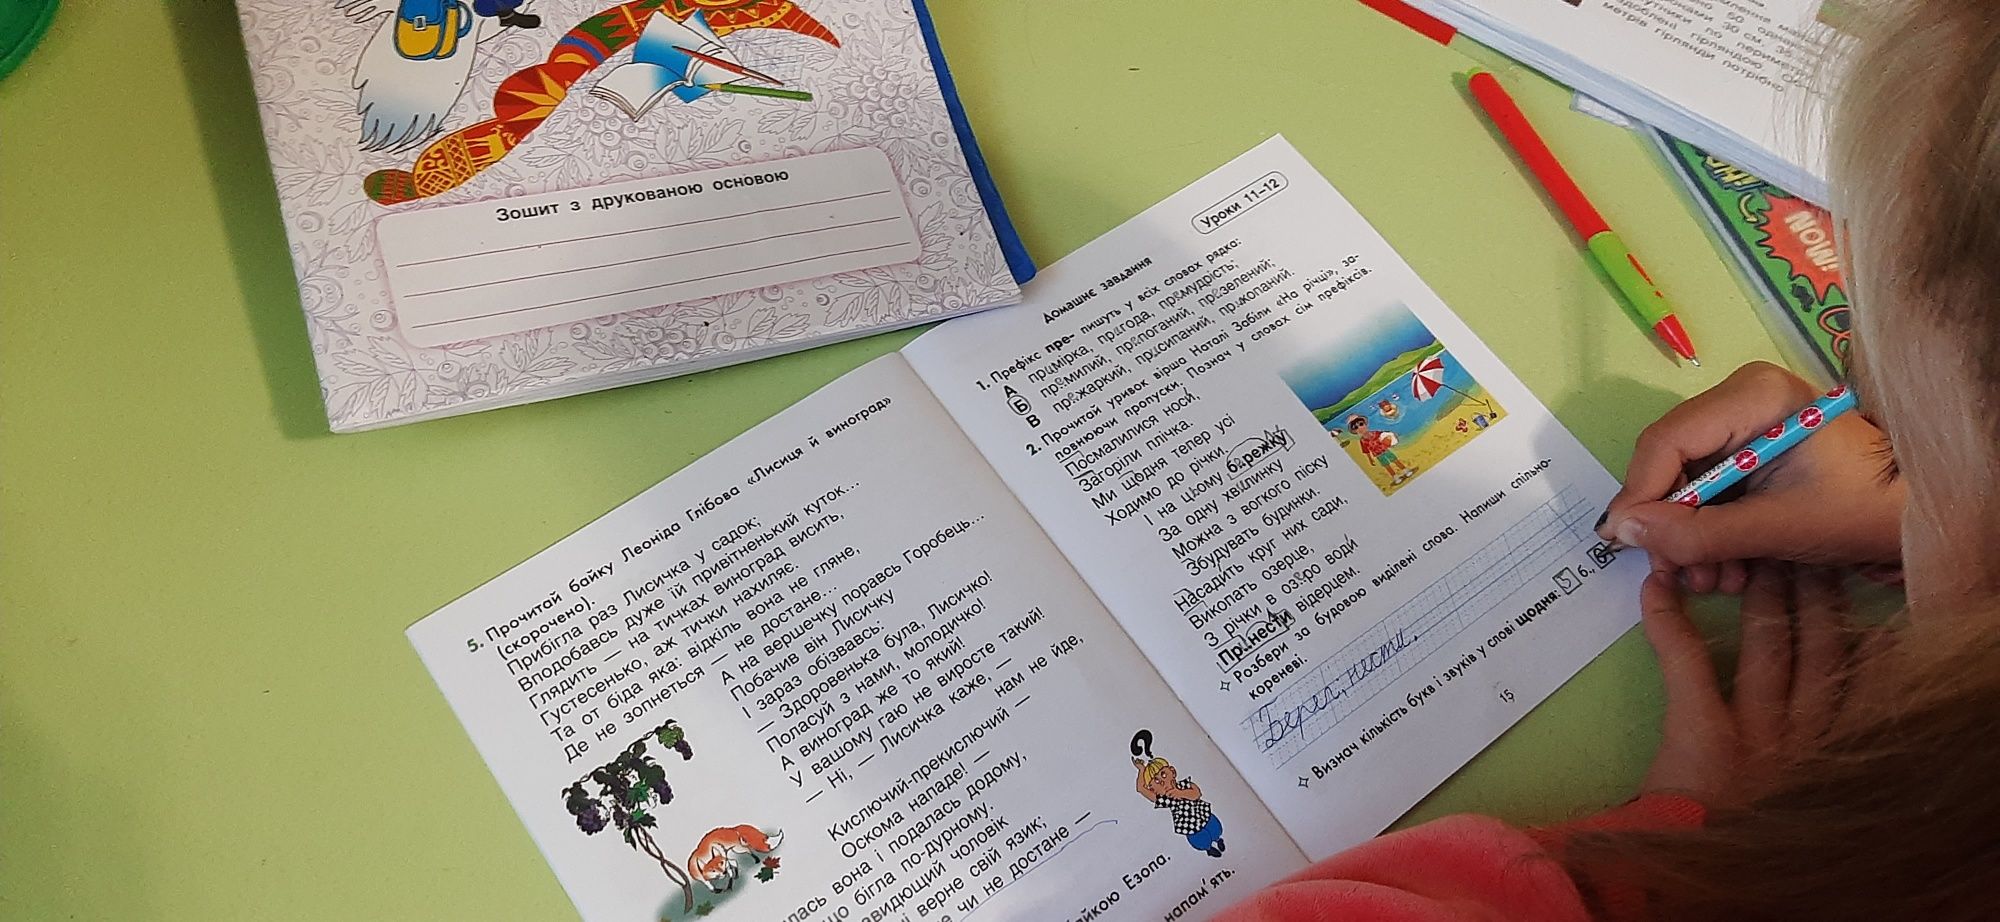 Зошит з друкованою основою
5. Прочитай байку Леоніда Глібова «Лисиця й виноград»
(скорочено).
Прибігла раз Лисичка у садок;
Вподобавсь дуже їй привітненький куток...
Глядить — на тичках виноград висить,
Густесенько, аж тички нахиляє.
Та от біда яка: відкіль вона не гляне,
Де не зопнеться — не достане...
А на вершечку поравсь Горобець...
Побачив він Лисичку
І зараз обізвавсь:
— Здоровенька була, Лисичко!
Поласуй з нами, молодичко!
А виноград же то який!
У вашому гаю не виросте такий!
— Ні, — Лисичка каже, —
нам не йде,
Кислючий-прекислючий —
Оскома нападе! —
лась вона і подалась додому,
що бігла по-дурному.
завидющий чоловік
і верне свій язик;
чи не достане —
байкою Езопа.
напам'ять.
Уроки 11–12
Домашнє завдання
1. Префікс пре- пишуть у всіх словах рядка:
А примірка, пригода, премудрість;
Б премилий, препоганий, презелений;
В прежаркий, присипаний, прикопаний.
2. Прочитай уривок вірша Наталі Забіли «На річці», за-
повнюючи пропуски. Познач у словах сім префіксів.
Посмалилися носи,
Загоріли плічка.
Ми щодня тепер усі
Ходимо до річки.
І на цьому бережку
За одну хвилинку
Можна з вогкого піску
Збудувать будинки.
Насадить круг них сади,
Викопать озерце,
З річки в озеро води
Принести відерцем.
Розбери за будовою виділені слова. Напиши спільно-
кореневі.
Берег, нести.
Визнач кількість букв і звуків у слові щодня: 5 б., 6
15